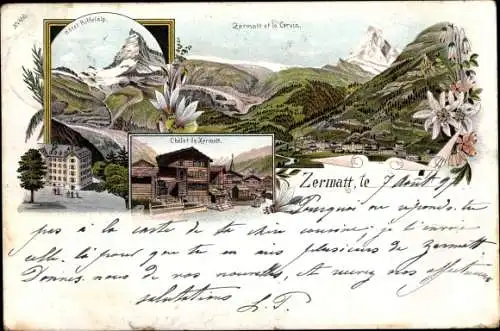 Hôtel Riffelalp.
Zermatt et le Cervin.
Chalet de Zermatt.
Zermatt, le 7 Août 9
Pourquoi ne réponds-tu
pas à la carte de ta chère cousine; je t'envoie
celle-là pour que tu en aies plusieurs de Zermatt
Donnez-nous de vos nouvelles, et recevez mes affectueuses
salutations L. T.